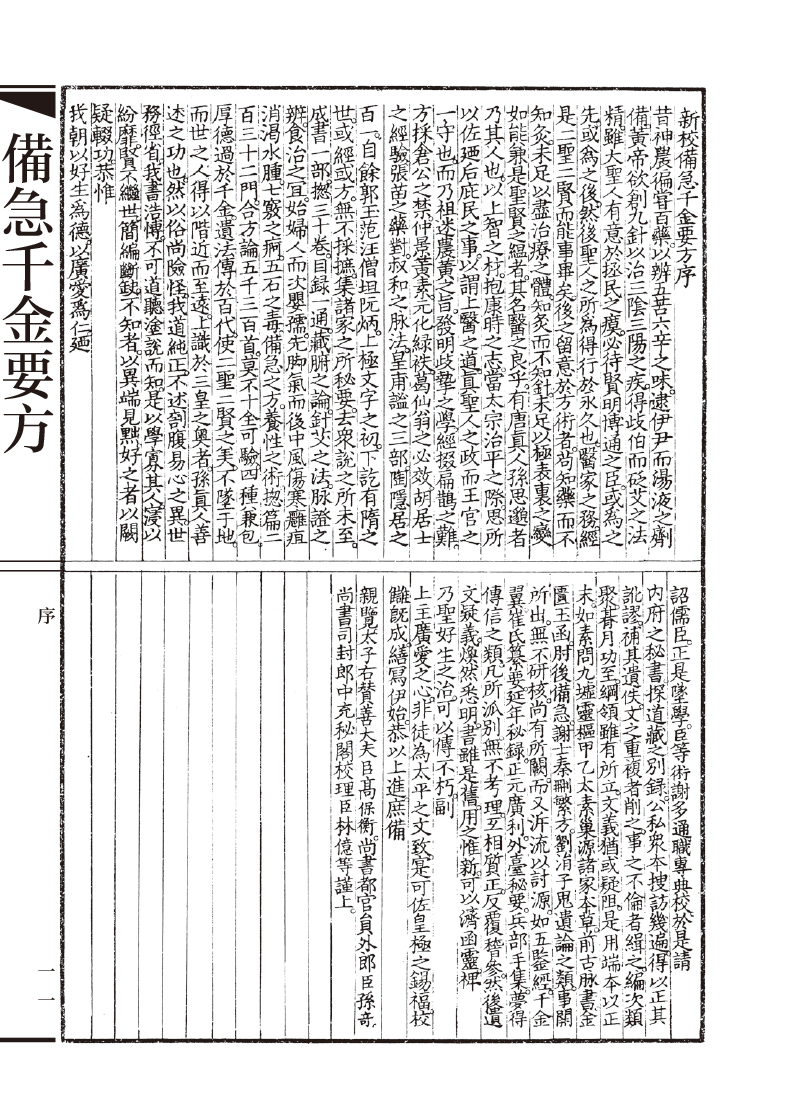 新校備急千金要方序
昔神農徧嘗百藥以辨五苦六辛之味逮伊尹而湯液之劑
備黃帝欲創九針以治三陰三陽之疾得歧伯而砭艾之法
精雖大聖人有意於拯民之瘼必待賢明博通之臣或為之
先或為之後然後聖人之所為得行於永久也醫家之務經
是二聖二賢而能事畢矣後之留意於方術者苟知藥而不
知灸未足以盡治療之體知灸而不知針未足以極表裏之變
如能兼是聖賢之蘊者其名醫之良乎有唐真人孫思邈者
乃其人也以上智之材抱康時之志當太宗治平之際思所
以佐廼后庇民之事以謂上醫之道真聖人之政而王官之
一守也而乃祖述農黃之旨發明歧摯之學經掇扁鵲之難
方採倉公之禁仲景黃素元化綠袟葛仙翁之必效胡居士
之經驗張苗之藥對叔和之脉法皇甫謐之三部陶隱居之
百一自餘郭玉范汪僧坦阮炳上極文字之初下訖有隋之
世或經或方無不採摭集諸家之所秘要去衆說之所未至
成書一部揔三十卷目録一通藏腑之論針艾之法脉證之
辨食治之宜始婦人而次嬰孺先脚氣而後中風傷寒癰疽
消渴水腫七竅之痾五石之毒備急之方養性之術揔篇二
百三十二門合方論五千三百首莫不十全可驗四種兼包
厚德過於千金遺法傳於百代使二聖二賢之美不墜于地
而世之人得以階近而至遠上識於三皇之奧者孫真人善
述之功也然以俗尚險怪我道純正不述刳腹易心之異世
務徑省我書浩博不可道聽塗說而知是以學寡其人寖以
紛靡賢不繼世簡編斷缺不知者以異端見黜好之者以闕
疑輟功恭惟
我朝以好生為德以廣愛為仁廼
詔儒臣正是墜學臣等術謝多通職專典校於是請
内府之秘書探道藏之别録公私衆本搜訪幾遍得以正其
訛謬補其遺佚文之重複者削之事之不倫者緝之編次類
聚朞月功至綱領雖有所立文義猶或疑阻是用端本以正
末如素問九墟靈樞甲乙太素巢源諸家本草前古脉書金
匱玉函肘後備急謝士秦刪繁方劉涓子鬼遺論之類事關
所出無不研核尚有所闕而又泝流以討源如五鑒經千金
翼崔氏纂要延年秘録正元廣利外臺秘要兵部手集夢得
傳信之類凡所派别無不考理互相質正反覆稽參然後遺
文疑義煥然悉明書雖是舊用之惟新可以濟函靈裨
乃聖好生之治可以傳不朽副
上主廣愛之心非徒為太平之文致寔可佐皇極之錫福校
讎旣成繕寫伊始恭以上進庶備
親覽太子右贊善大夫臣高保衡尚書都官員外郎臣孫奇
尚書司封郎中充秘閣校理臣林億等謹上
備急千金要方
序
一一